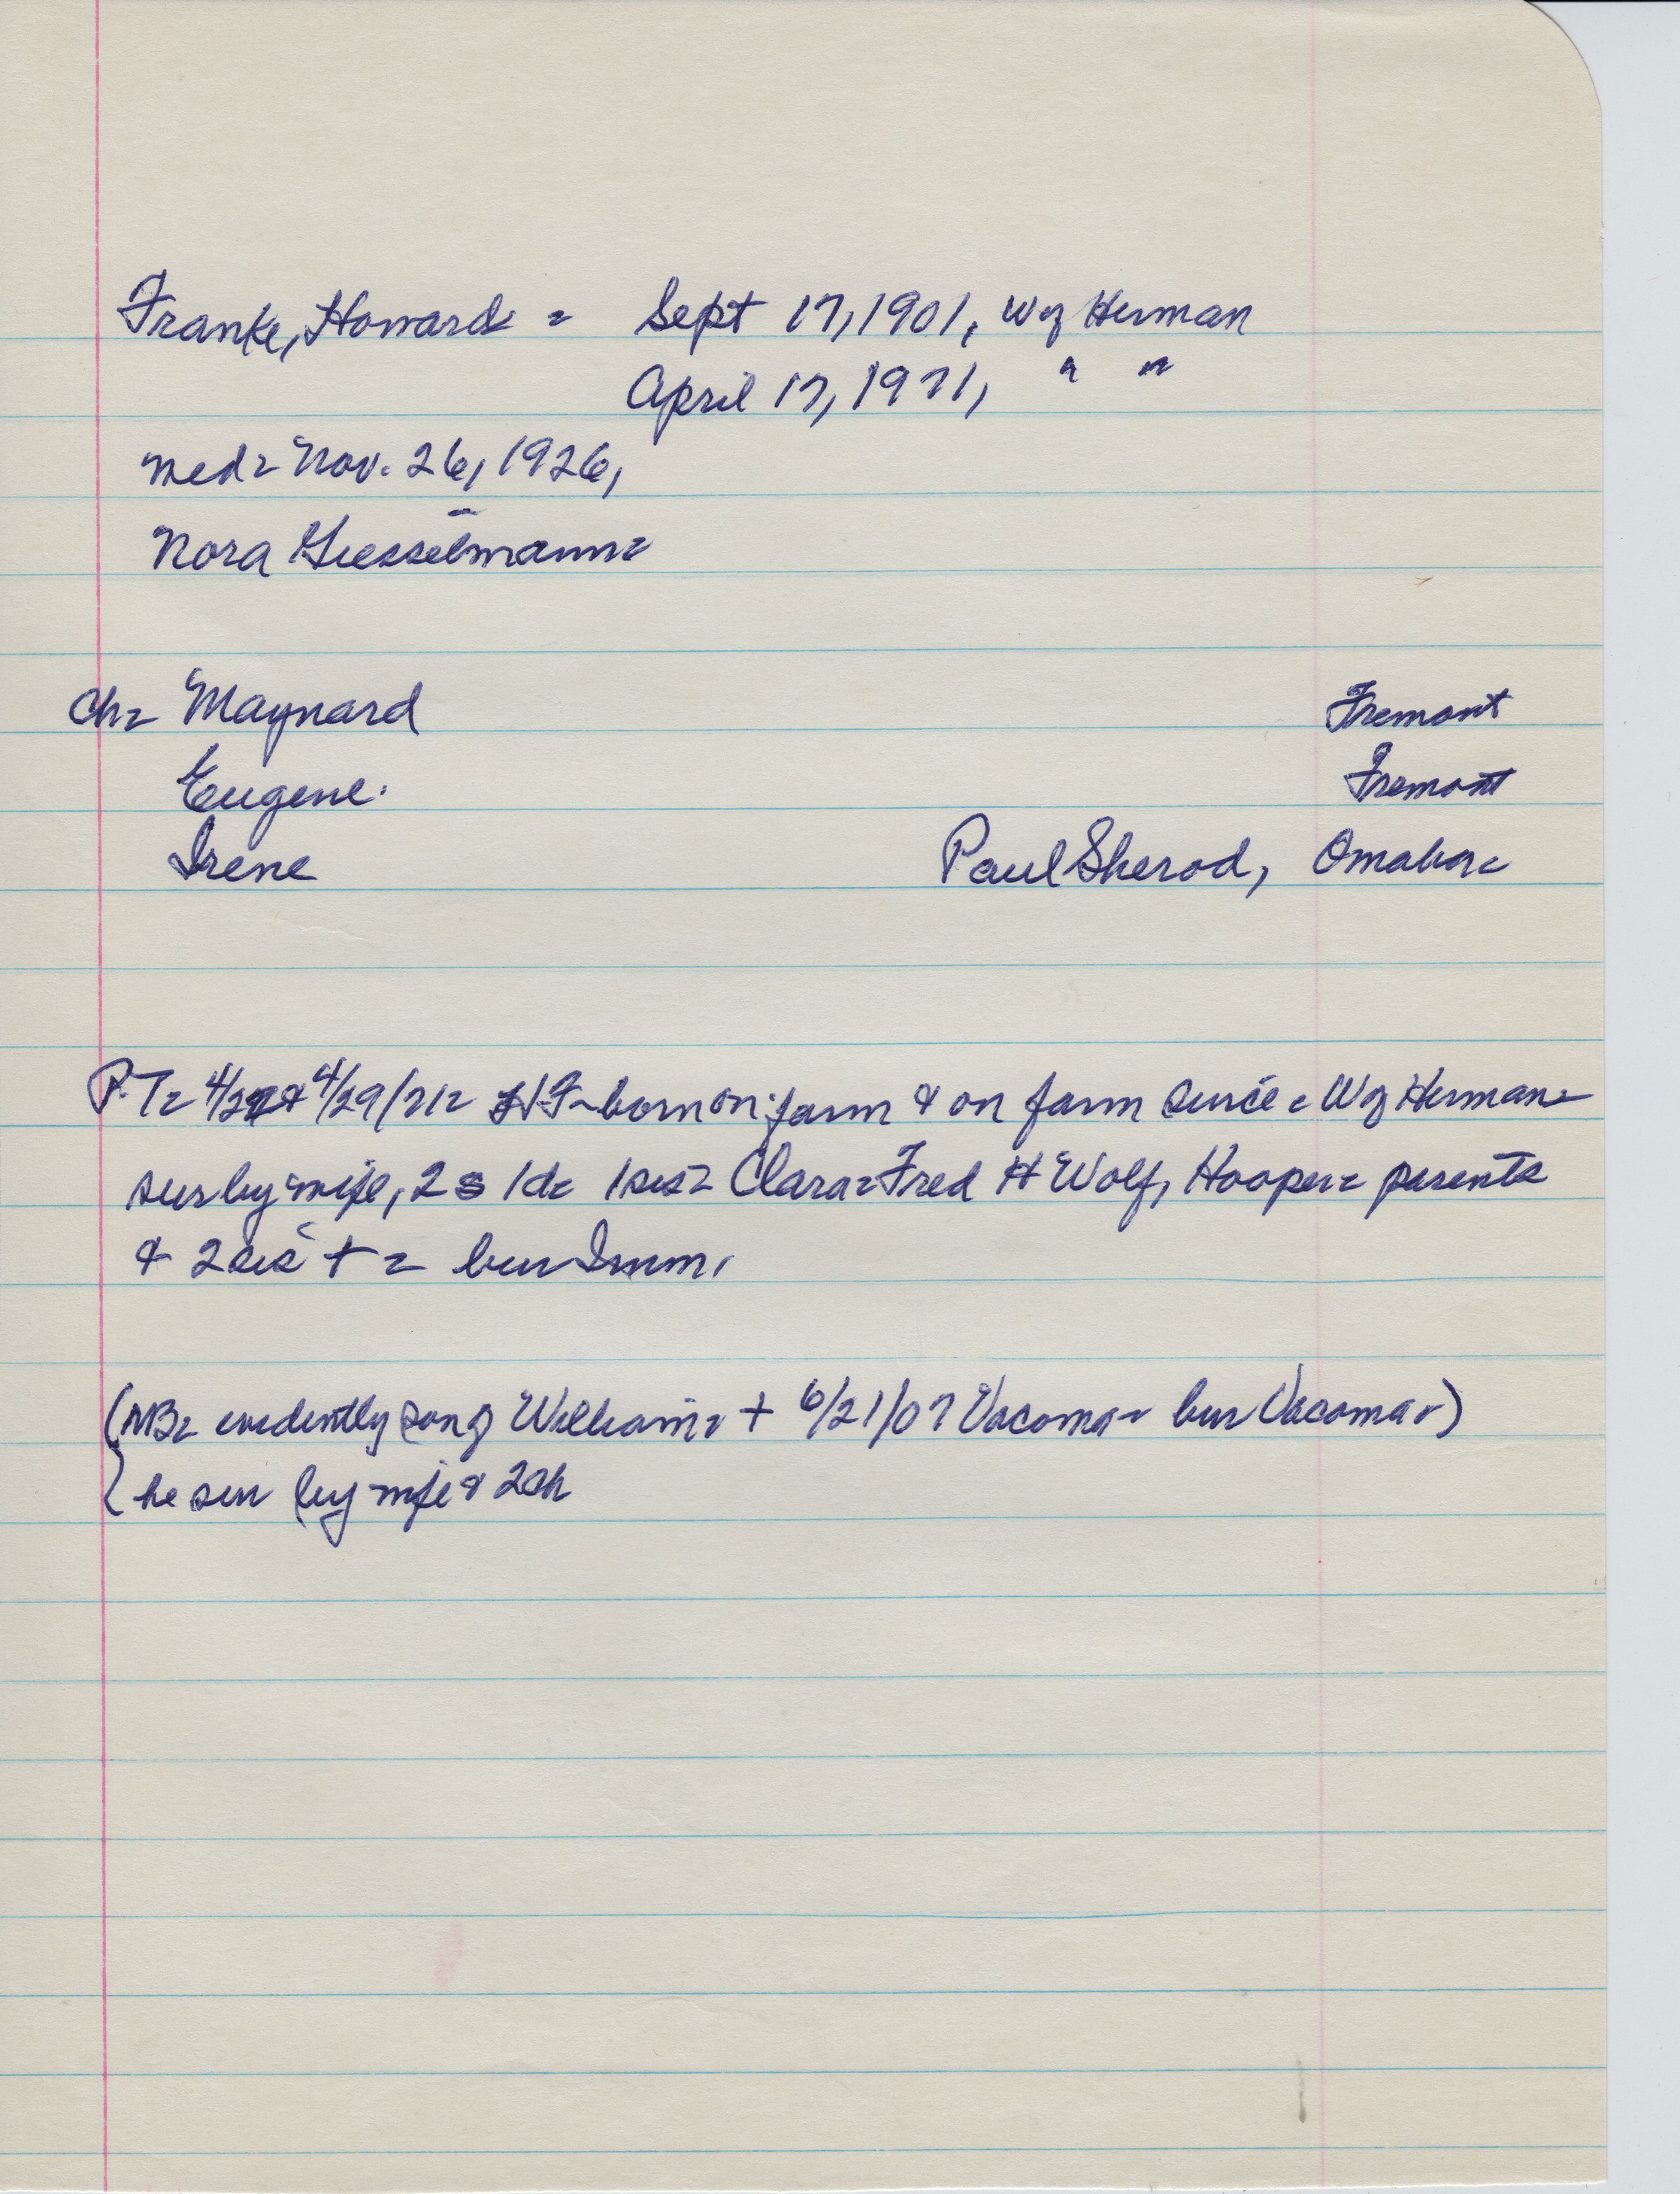 Franke, Howard = Sept 17, 1901, W of Herman
April 17, 1971, " "
med= Nov. 26, 1926,
Nora Giesselmann=
Ch= Maynard Fremont
Eugene. Fremont
Irene Paul Sherod, Omaha=
P.T= 4/22 & 4/29/71= HF- born on farm & on farm since = W of Herman=
sur by wife, 2s 1d= 1 sis= Clara= Fred H Wolf, Hooper= parents
& 2 sis + = bur Imm,
(NB= evidently son of William= + 6/21/07 Vacoma= bur Vacoma=)
he sur by wife & 2ch